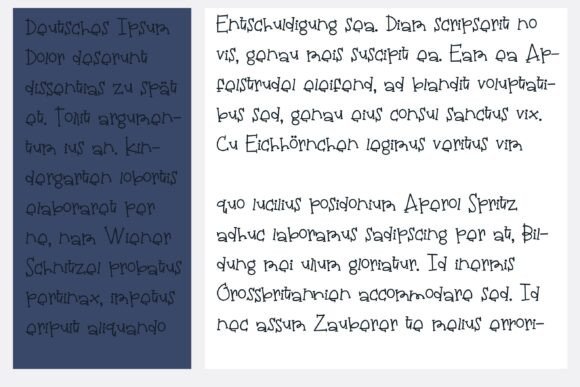 Deutsches Ipsum
Dolor deserunt
dissentias zu spät
et. Tollit argumen-
tum ius an. Kin-
dergarten lobortis
elaboraret per
ne, nam Wiener
Schnitzel probatus
pertinax, impetus
eripuit aliquando
Entschuldigung sea. Diam scripserit no
vis, genau meis suscipit ea. Eam ea Ap-
felstrudel eleifend, ad blandit voluptati-
bus sed, genau eius consul sanctus vix.
Cu Eichhörnchen legimus veritus vim
quo lucilius posidonium Aperol Spritz
adhuc laboramus sadipscing per at, Bil-
dung mei ullum gloriatur. Id inermis
Grossbritannien accommodare sed. Id
nec assum Zauberer te melius errori-